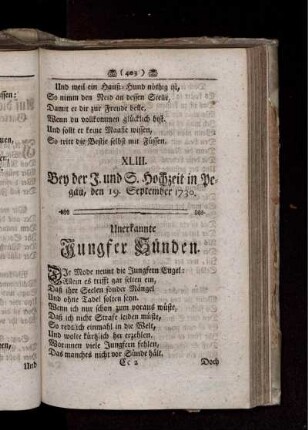 (403)
Und weil ein Haus-Hund nöthig ist,
So nimm den Neid an dessen Stelle,
Damit er dir zur Freude belle,
Wenn du vollkommen glücklich bist.
Und sollt er keine Maaße wissen,
So tritt die Bestie selbst mit Füssen.
XLIII.
Bey der J. und S. Hochzeit in Pe-
gau, den 19. September 1730.
Unerkannte
Jungfer Sünden.
Die Mode nennt die Jungfern Engel:
Allein es trifft gar selten ein,
Daß ihre Seelen sonder Mängel
Und ohne Tadel solten seyn.
Wenn ich nur schon zum voraus wüste,
Daß ich nicht Strafe leiden müste,
So redt ich einmahl in die Welt,
Und wolte kürtzlich her erzehlen,
Worinnen viele Jungfern fehlen,
Das manches nicht vor Sünde hält.
Cc 2
Doch
Und